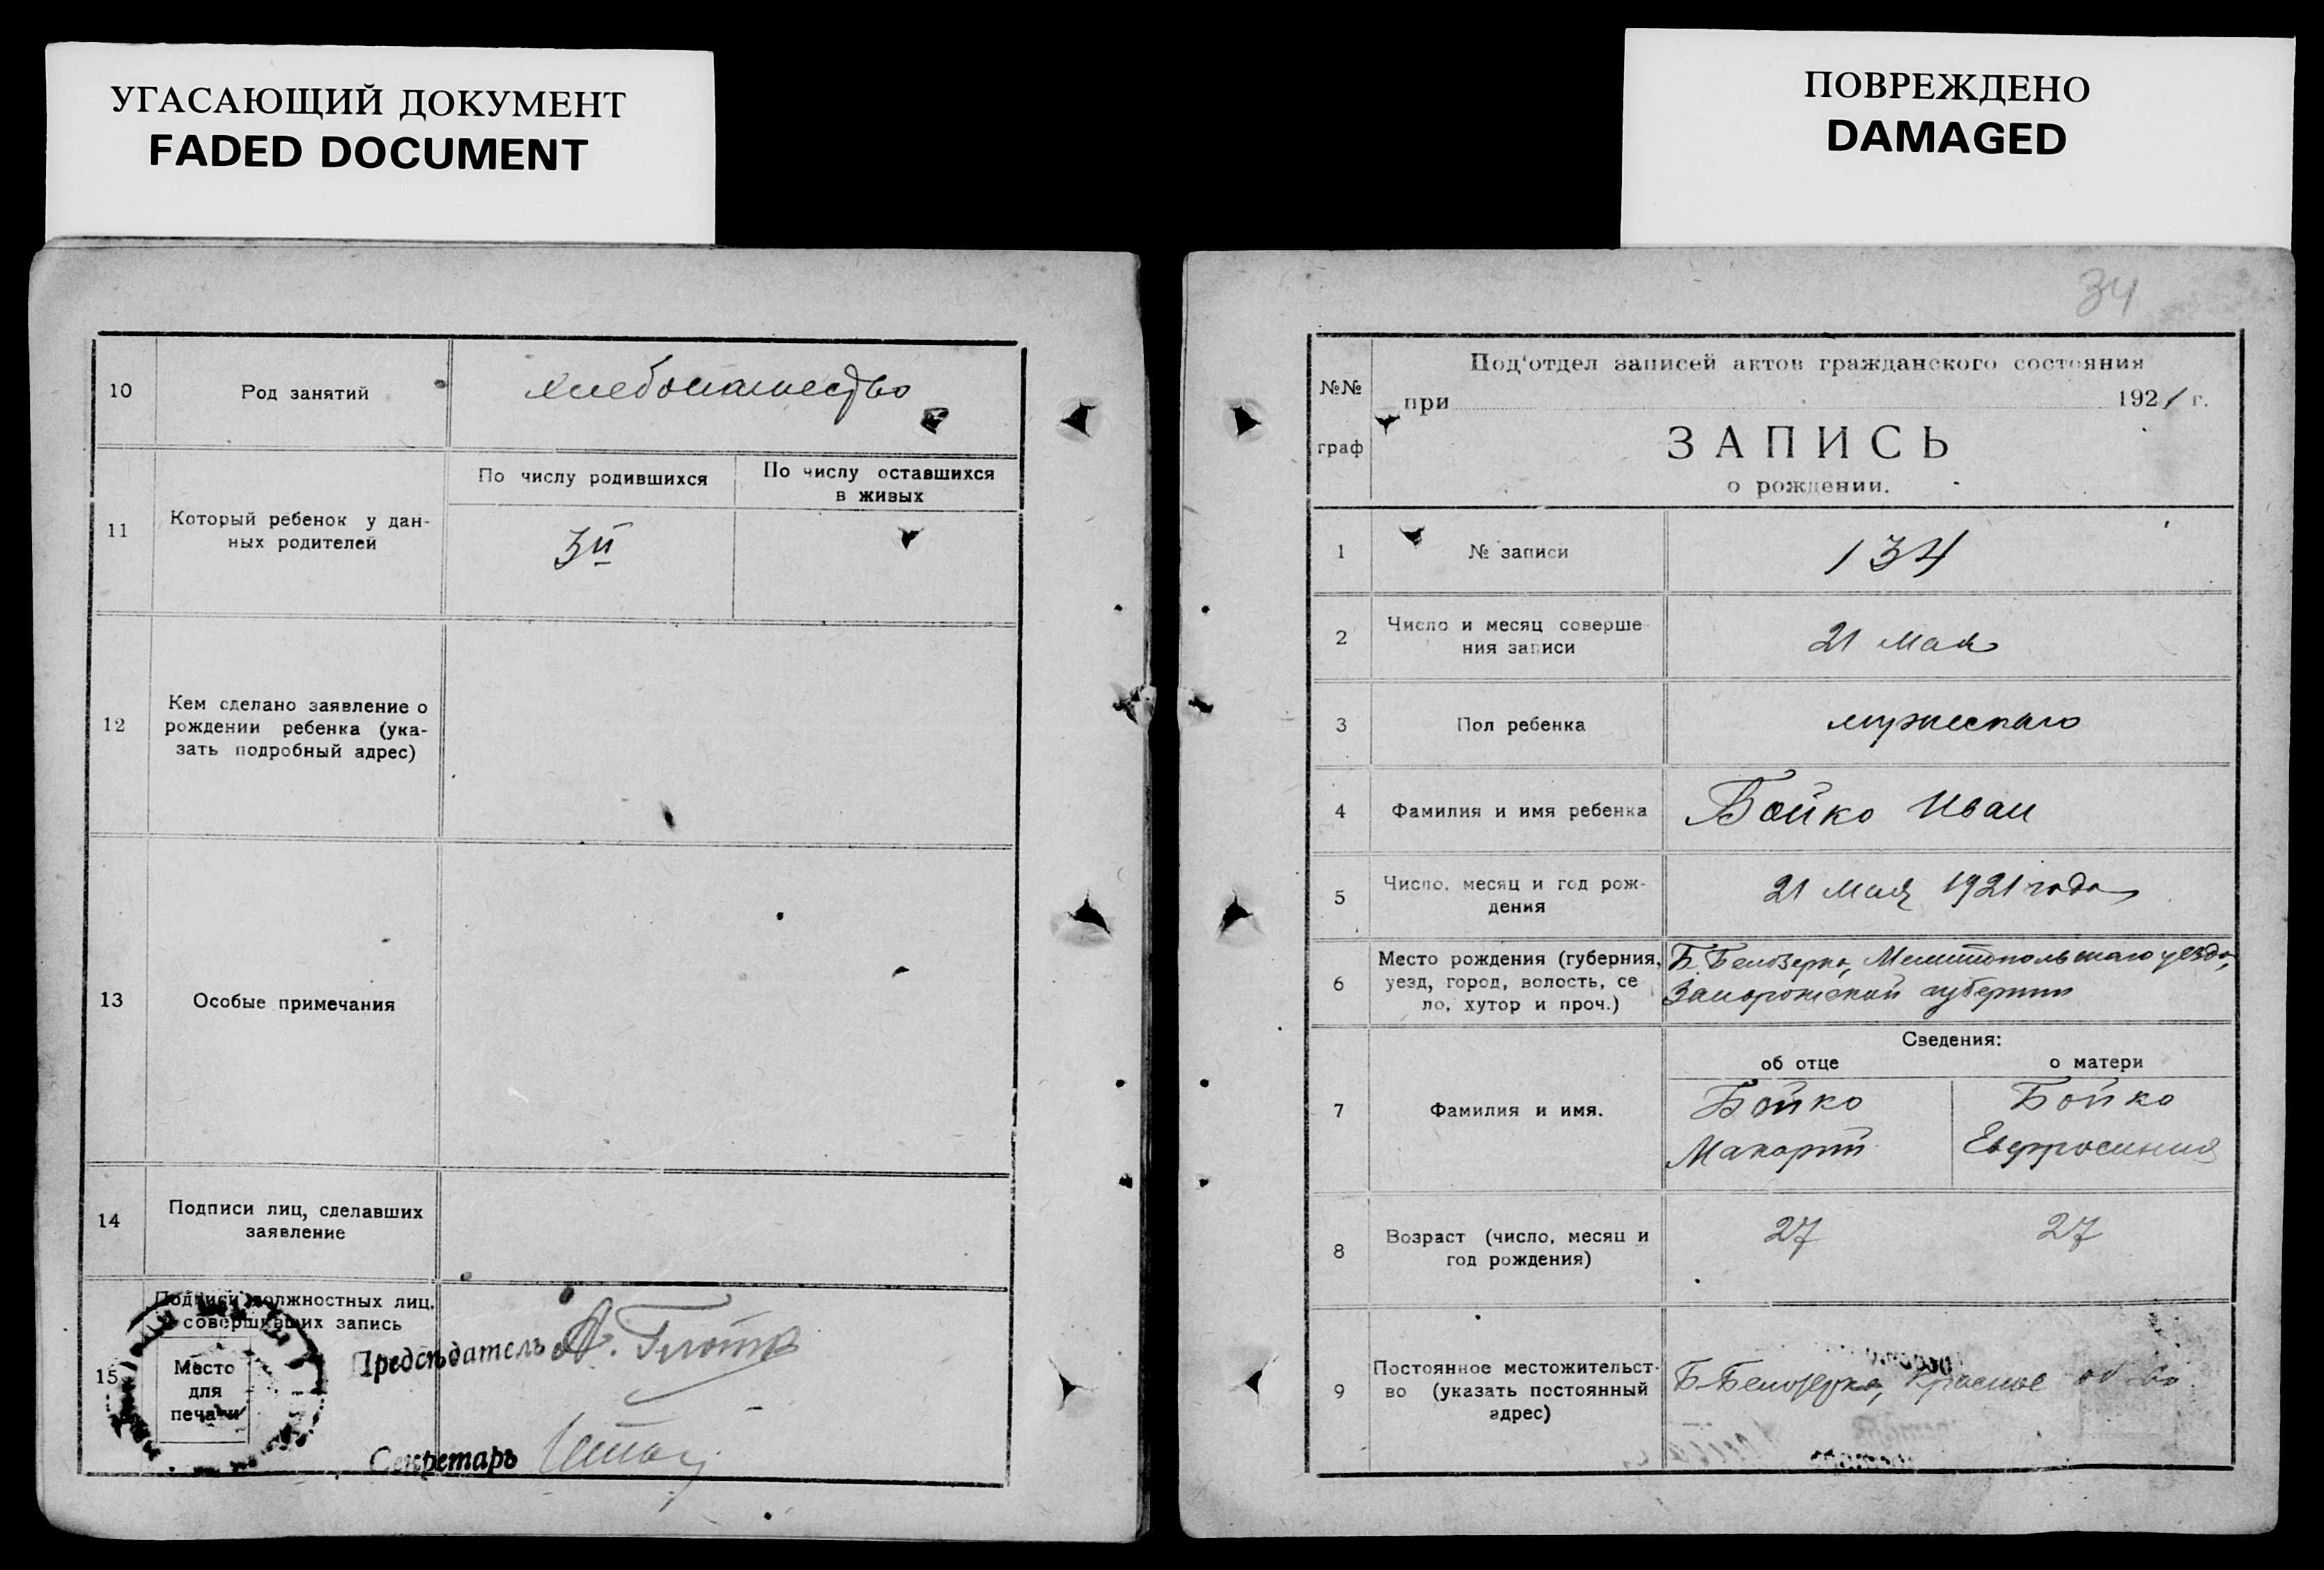 УГАСАЮЩИЙ ДОКУМЕНТ
FADED DOCUMENT
10
Род занятий
хлебопашество
11
Который ребенок у дан-
ных родителей
По числу родившихся
По числу оставшихся
в живых
3й
12
Кем сделано заявление о
рождении ребенка (ука-
зать подробный адрес)
13
Особые примечания
14
Подписи лиц, сделавших
заявление
15
Подписи должностных лиц,
совершивших запись
Место
для
печати
Председатель
Секретарь
ПОВРЕЖДЕНО
DAMAGED
34
№№
граф
Под'отдел записей актов гражданского состояния
при 1921 г.
ЗАПИСЬ
о рождении.
1
№ записи
134
2
Число и месяц соверше-
ния записи
21 мая
3
Пол ребенка
мужескаго
4
Фамилия и имя ребенка
Бойко Иван
5
Число, месяц и год рож-
дения
21 мая 1921 года
6
Место рождения (губерния,
уезд, город, волость, се
ло, хутор и проч.)
Б. Белозерка, Мелитопольскаго уезда,
Запорожской губернии
Сведения:
об отце
о матери
7
Фамилия и имя.
Бойко
Макарий
Бойко
Евфросиния
8
Возраст (число, месяц и
год рождения)
27
27
9
Постоянное местожительст-
во (указать постоянный
адрес)
Б-Белозерка, Красное об-во